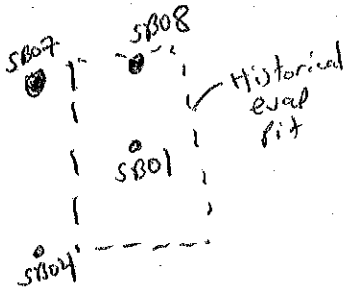 SB07
SB08
Historical
evap
pit
SB01
SB04